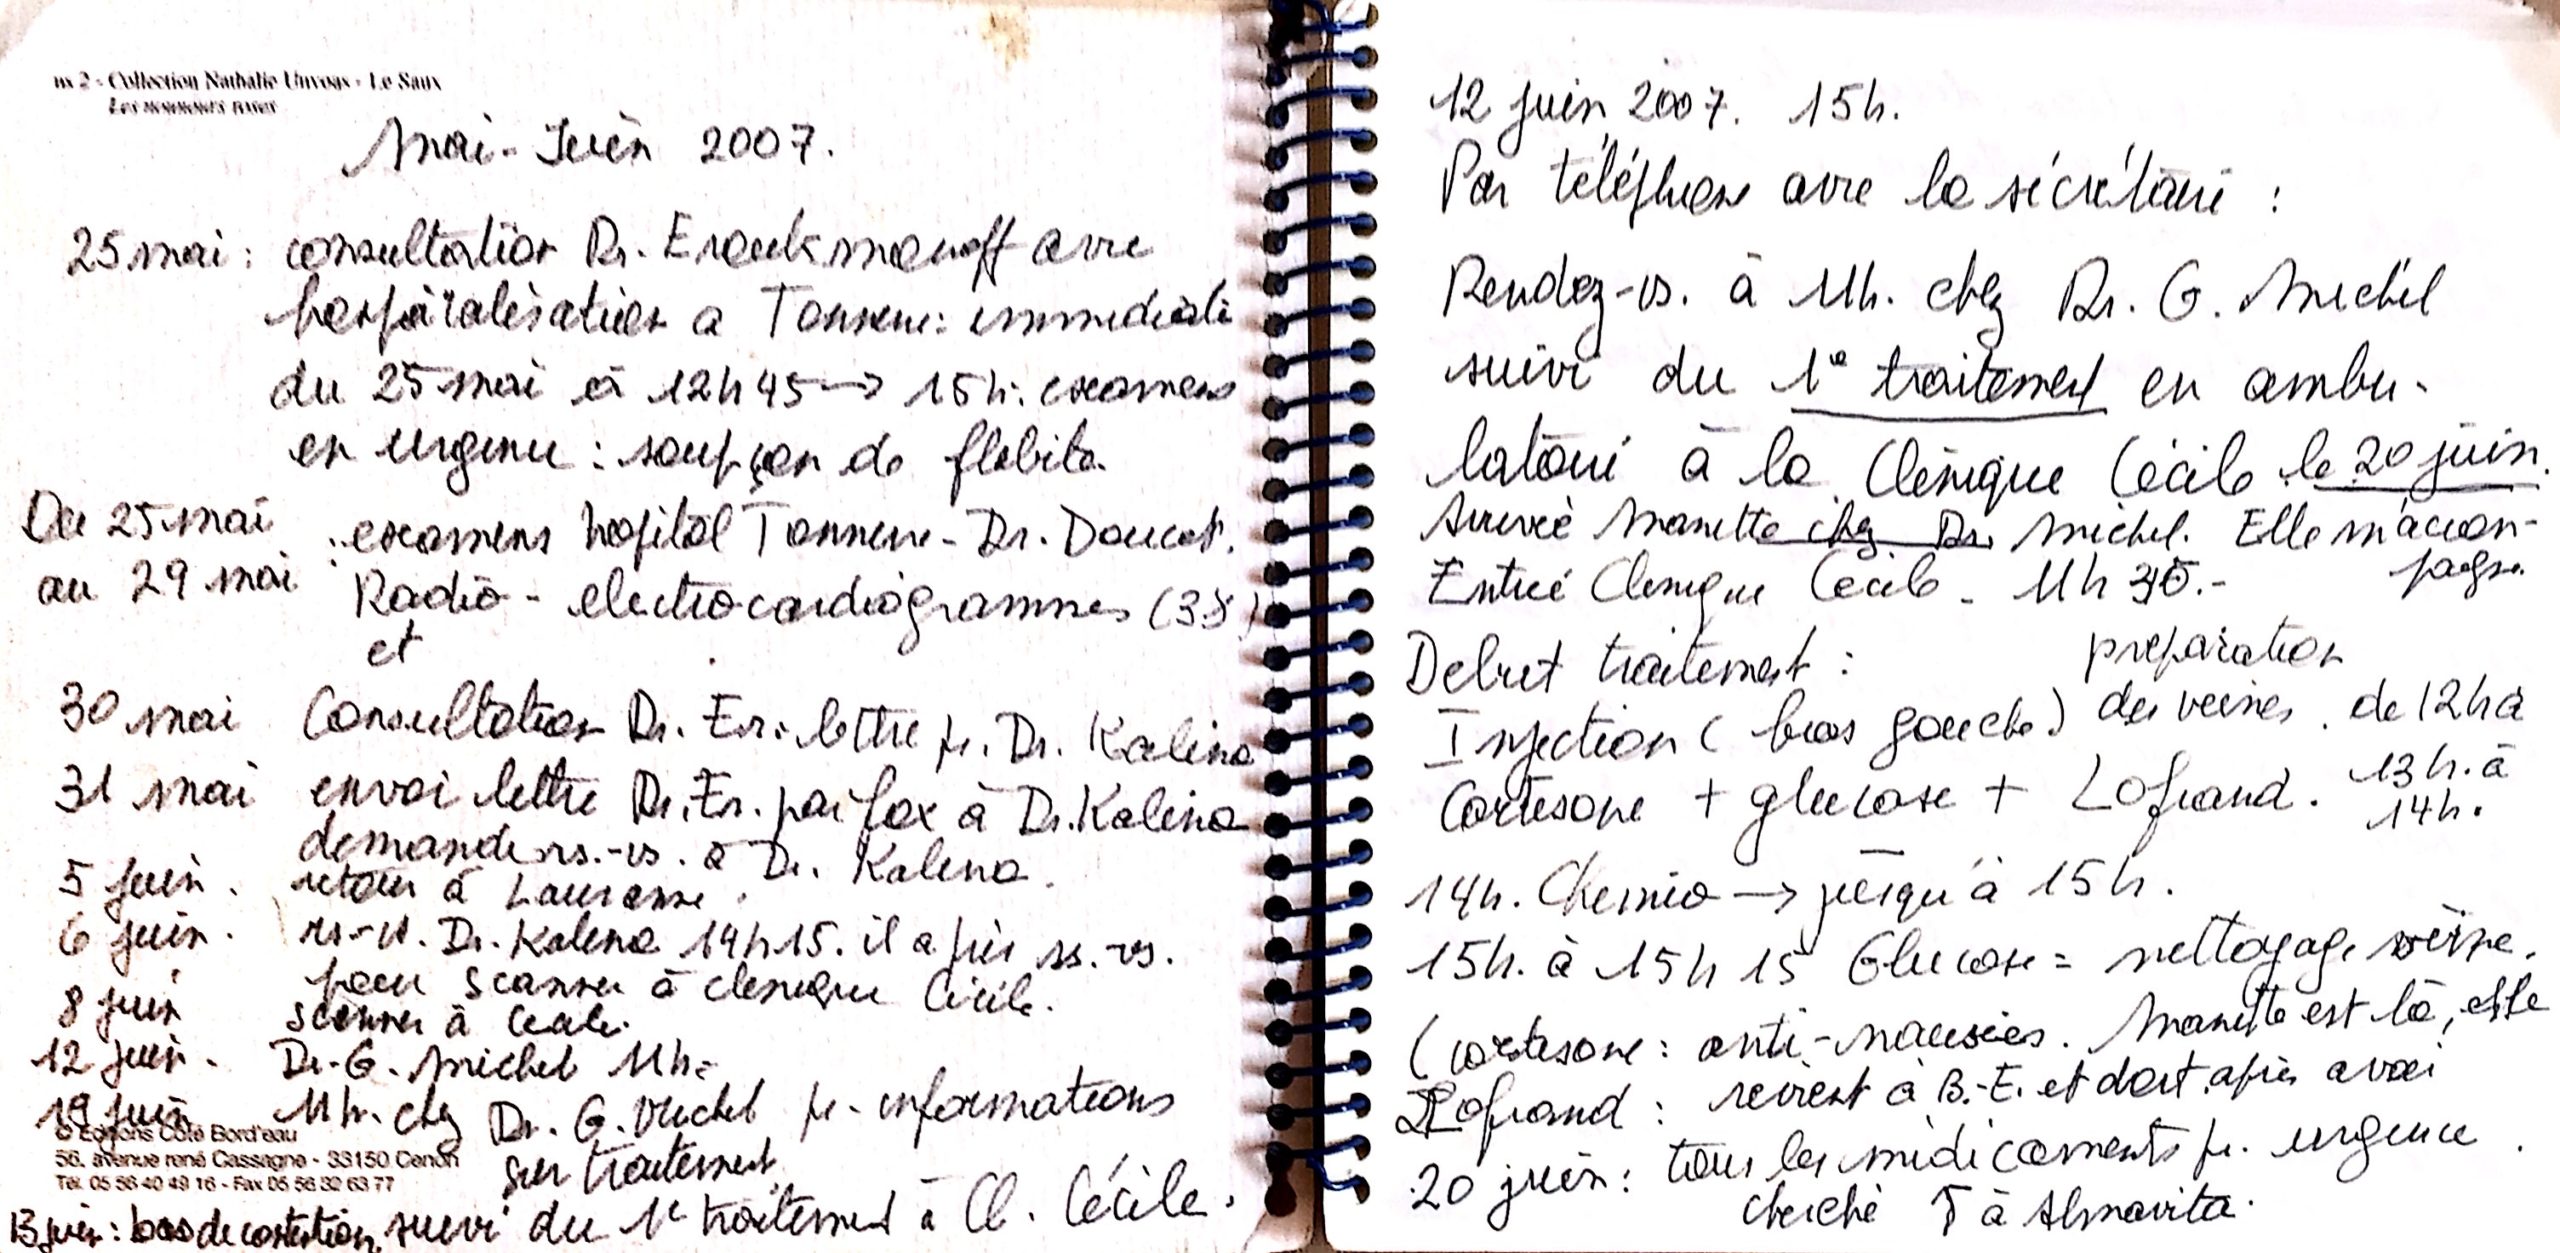 ns 2 - Collection Nathalie Unvoas - Le Saux
Les nounours roses
Mai - Juin 2007.
25 mai : consultation Dr. Erauksmanoff avec
hospitalisation a Tonnerre immédiate
du 25 mai à 12h45 → 15h: examens
en urgence : soupçon de flebite.
Du 25 mai
au 29 mai : examens hopital Tonnerre - Dr. Doucet.
Radio - electrocardiogrammes (3x)
et
30 mai Consultation Dr. Er. lettre pr. Dr. Kalina
31 mai envoi lettre Dr. Er. par fax à Dr. Kalina
demande rs.-vs. à Dr. Kalina.
5 juin. retour à Lausanne.
6 juin. rs-vs. Dr. Kalina 14h15. il a pris rs.-vs.
pour scanner à clinique Cécile.
8 juin scanner à Cécile.
12 juin. Dr. G. Michel 11h.
19 juin 11h. chez Dr. G. Michel pr. informations
sur traitement
© Editions Côté Bord'eau
56, avenue rené Cassagne - 33150 Cenon
Tél. 05 56 40 49 16 - Fax 05 56 32 63 77
13 juin : bas de contention suivi du 1e traitement à Cl. Cécile.
12 juin 2007. 15h.
Par téléphone avec la sécrétaire :
Rendez-vs. à 11h. chez Dr. G. Michel
suivi du 1e traitement en ambu-
latoire à la Clinique Cécile le 20 juin.
Arrivée Manette chez Dr. Michel. Elle m'accom-
pagne.
Entrée Clinique Cécile. 11h 30.-
Debut traitement : préparation
Injection (bras gauche) des veines. de 12h à
13h. à
Cortisone + glucose + Zofrand.
14h.
14h. Chimio → jusqu'à 15h.
15h. à 15h15 Glucose = nettoyage veine.
(cortisone : anti-nausées. Manette est là, elle
Zofrand : revient à B.-E. et dort après avoir
20 juin : tous les médicaments pr. urgence.
cherché à Almavita.